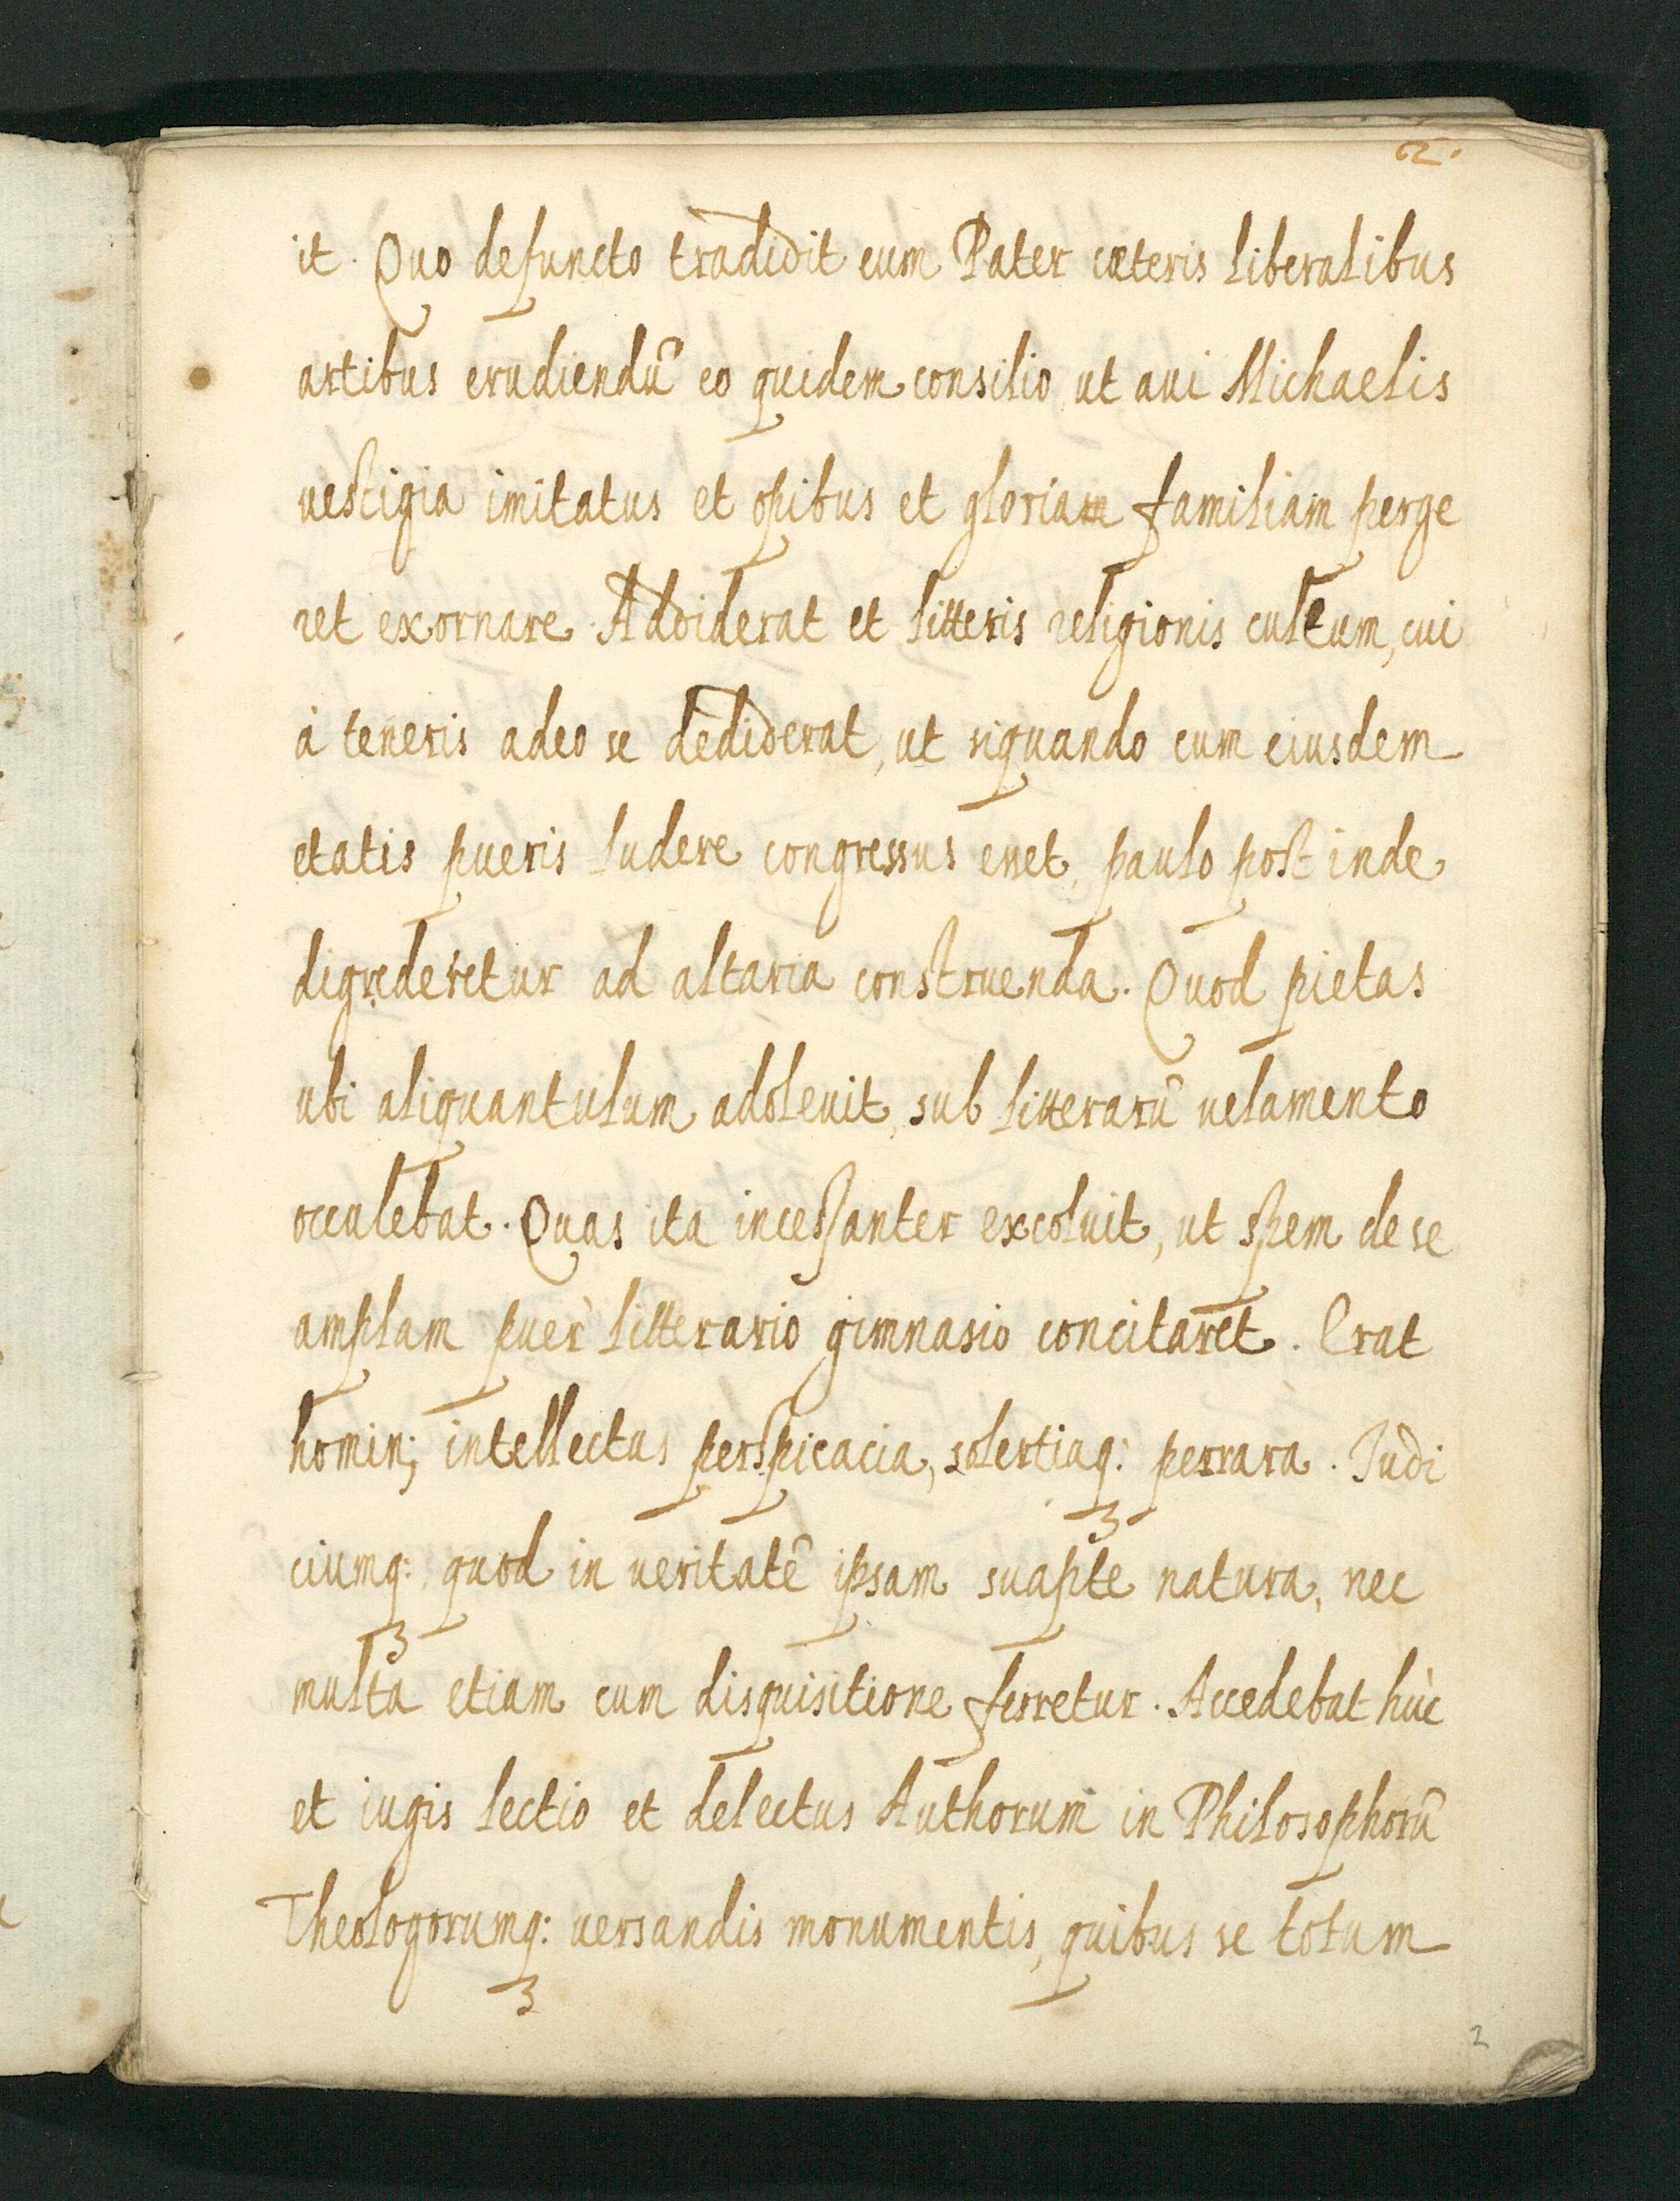 2.
it. Quo defuncto tradidit eum Pater cæteris liberalibus
artibus erudiendũ eo quidem consilio ut aui Michaelis
uestigia imitatus et opibus et gloriam familiam perge
ret exornare. Addiderat et litteris religionis cultum, cui
à teneris adeo se dediderat, ut siquando cum eiusdem
etatis pueris ludere congressus esset, paulo post inde
digrederetur ad altaria construenda. Quod pietas
ubi aliquantulum adoleuit, sub litterarũ uelamento
occulebat. Quas ita incessanter excoluit, ut spem de se
amplam puer litterario gimnasio concitaret. Erat
homin; intellectus perspicacia, solertiaq: perrara. Iudi
ciumq: quod in ueritatẽ ipsam suapte natura, nec
multa etiam cum disquisitione ferretur. Accedebat hùc
et iugis lectio et delectus Authorum in Philosophorũ
Theologorumq: uersandis monumentis, quibus se totum
2